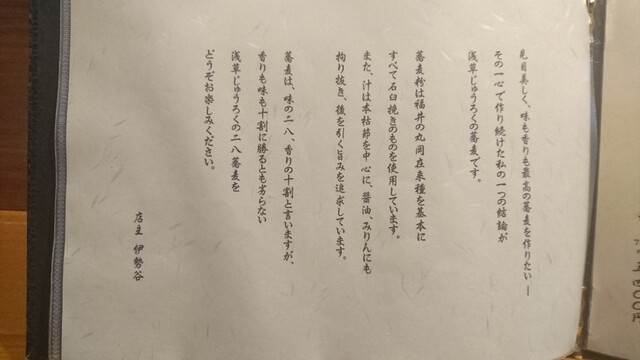 見目美しく、味も香りも最高の蕎麦を作りたい―
その一心で作り続けた私の一つの結論が
浅草じゅうろくの蕎麦です。
蕎麦粉は福井の丸岡在来種を基本に
すべて石臼挽きのものを使用しています。
また、汁は本枯節を中心に、醤油、みりんにも
拘り抜き、後を引く旨みを追求しています。
蕎麦は、味の二八、香りの十割と言いますが、
香りも味も十割に勝るとも劣らない
浅草じゅうろくの二八蕎麦を
どうぞお楽しみください。
店主 伊勢谷